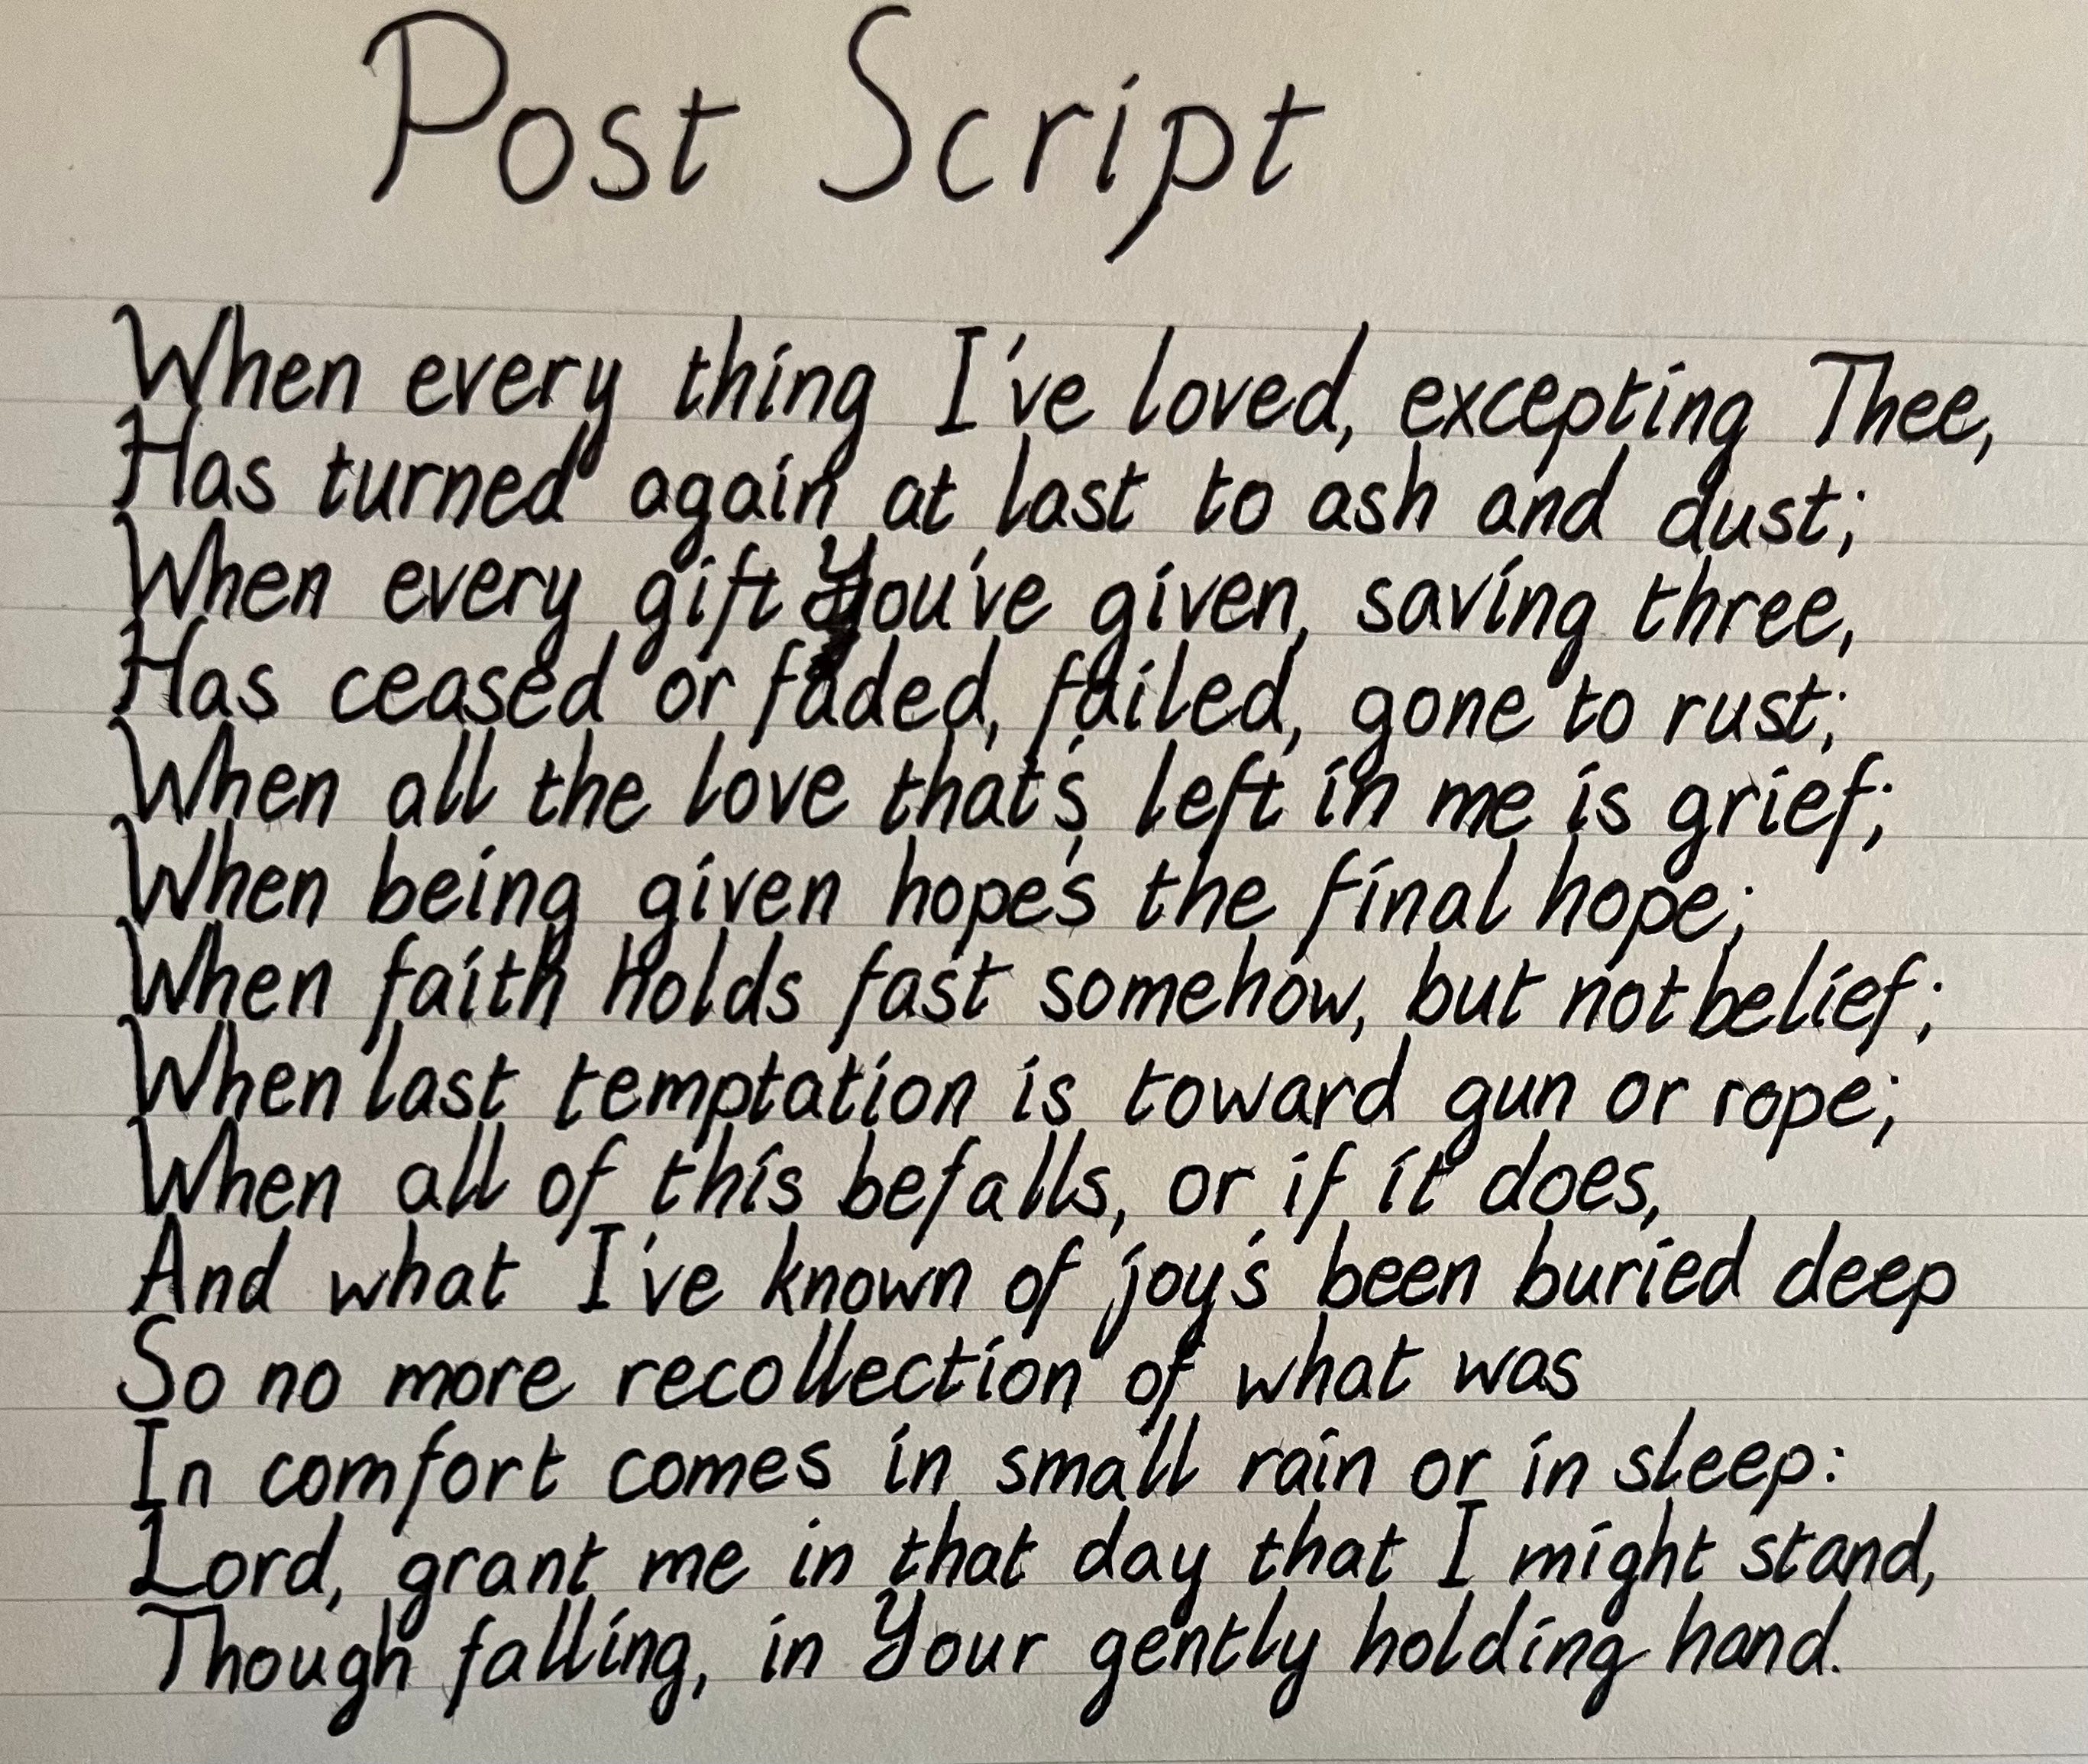 Post Script
When every thing I've loved, excepting Thee,
Has turned again at last to ash and dust;
When every gift You've given, saving three,
Has ceased or faded, failed, gone to rust;
When all the love that's left in me is grief;
When being given hope's the final hope;
When faith holds fast somehow, but not belief;
When last temptation is toward gun or rope;
When all of this befalls, or if it does,
And what I've known of joy's been buried deep
So no more recollection of what was
In comfort comes in small rain or in sleep:
Lord, grant me in that day that I might stand,
Though falling, in Your gently holding hand.